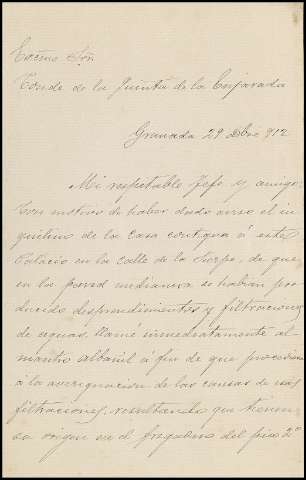 Excmo Sr.
Conde de la Quinta de la Enjarada
Granada 29 Dbre 912
Mi respetable Jefe y amigo:
Con motivo de haber dado aviso el in-
quilino de la casa contigua á este
Palacio en la calle de la Sierpe, de que
en la pared medianera se habían pro-
ducido desprendimientos y filtraciones
de aguas, llamé inmediatamente al
maestro albañil á fin de que procediera
á la averiguación de las causas de esas
filtraciones, resultando que tienen
su origen en el fregadero del piso 2º